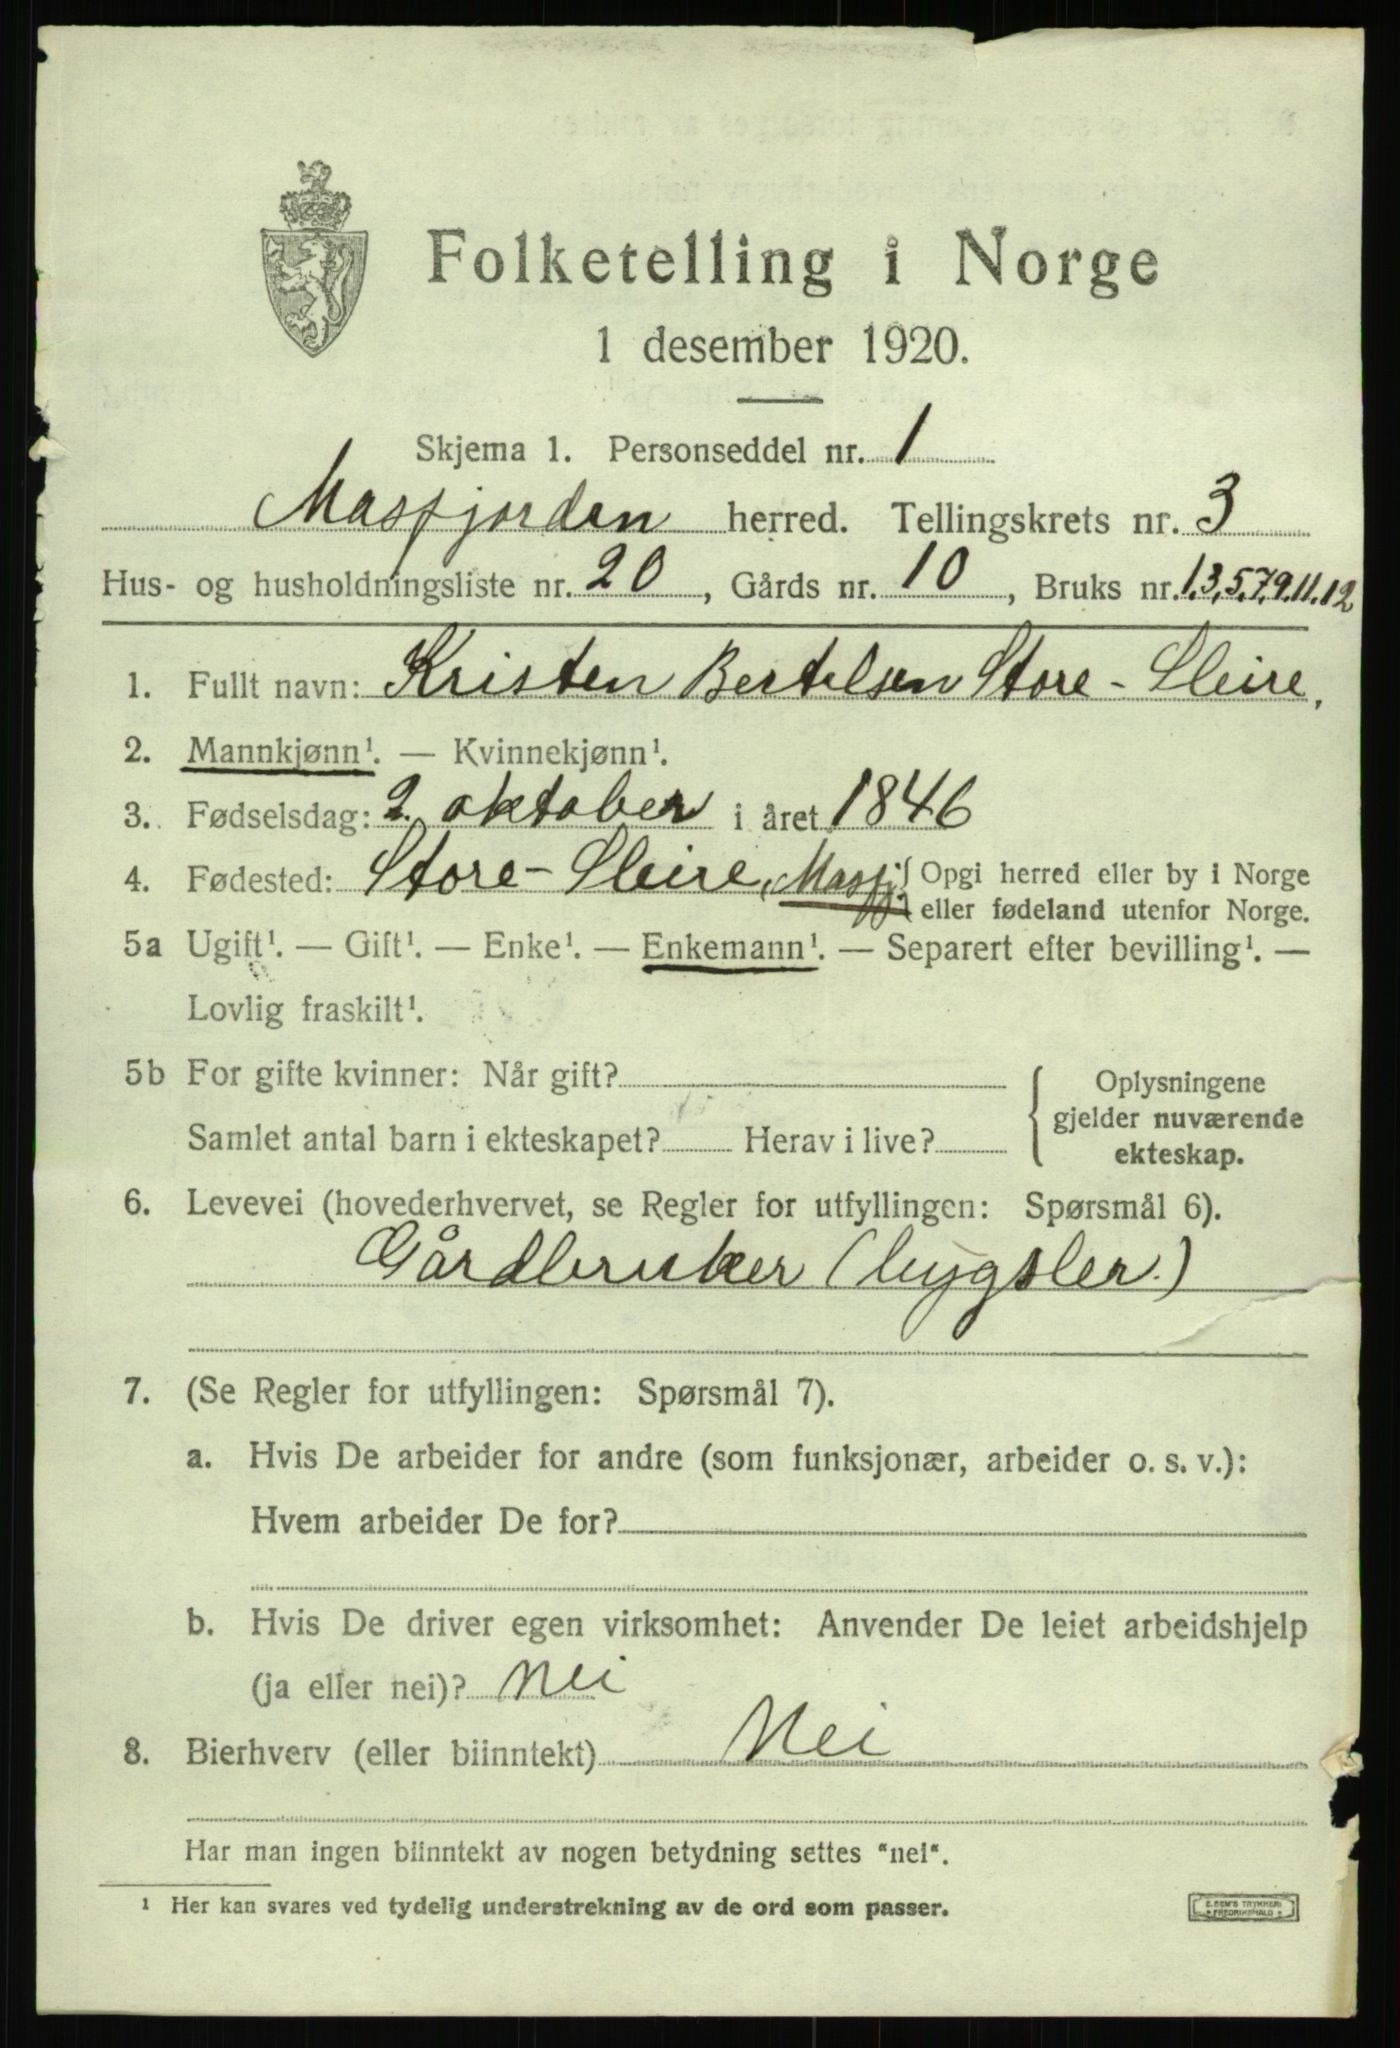 Folketelling i Norge
1 desember 1920.
Skjema 1. Personseddel nr. 1
Masfjorden herred. Tellingskrets nr. 3
Hus- og husholdningsliste nr. 20, Gårds nr. 10, Bruks nr. 1,3,5,7,9,11,12
1. Fullt navn: Kristen Bertelsen Store-Sleire,
2. Mannkjønn¹. — Kvinnekjønn¹.
3. Fødselsdag: 2. oktober i året 1846
4. Fødested: Store-Sleire, Masfj. { Opgi herred eller by i Norge
eller fødeland utenfor Norge.
5a Ugift¹. — Gift¹. — Enke¹. — Enkemann¹. — Separert efter bevilling¹. —
Lovlig fraskilt¹.
5b For gifte kvinner: Når gift?
Samlet antal barn i ekteskapet? Herav i live?
{ Oplysningene
gjelder nuværende
ekteskap.
6. Levevei (hovederhvervet, se Regler for utfyllingen: Spørsmål 6).
Gårdbruker (bygsler.)
7. (Se Regler for utfyllingen: Spørsmål 7).
a. Hvis De arbeider for andre (som funksjonær, arbeider o. s. v.):
Hvem arbeider De for?
b. Hvis De driver egen virksomhet: Anvender De leiet arbeidshjelp
(ja eller nei)? Nei
8. Bierhverv (eller biinntekt) Nei
Har man ingen biinntekt av nogen betydning settes "nei".
¹ Her kan svares ved tydelig understrekning av de ord som passer.
E. SEM'S TRYKKERI
FREDRIKSHALD